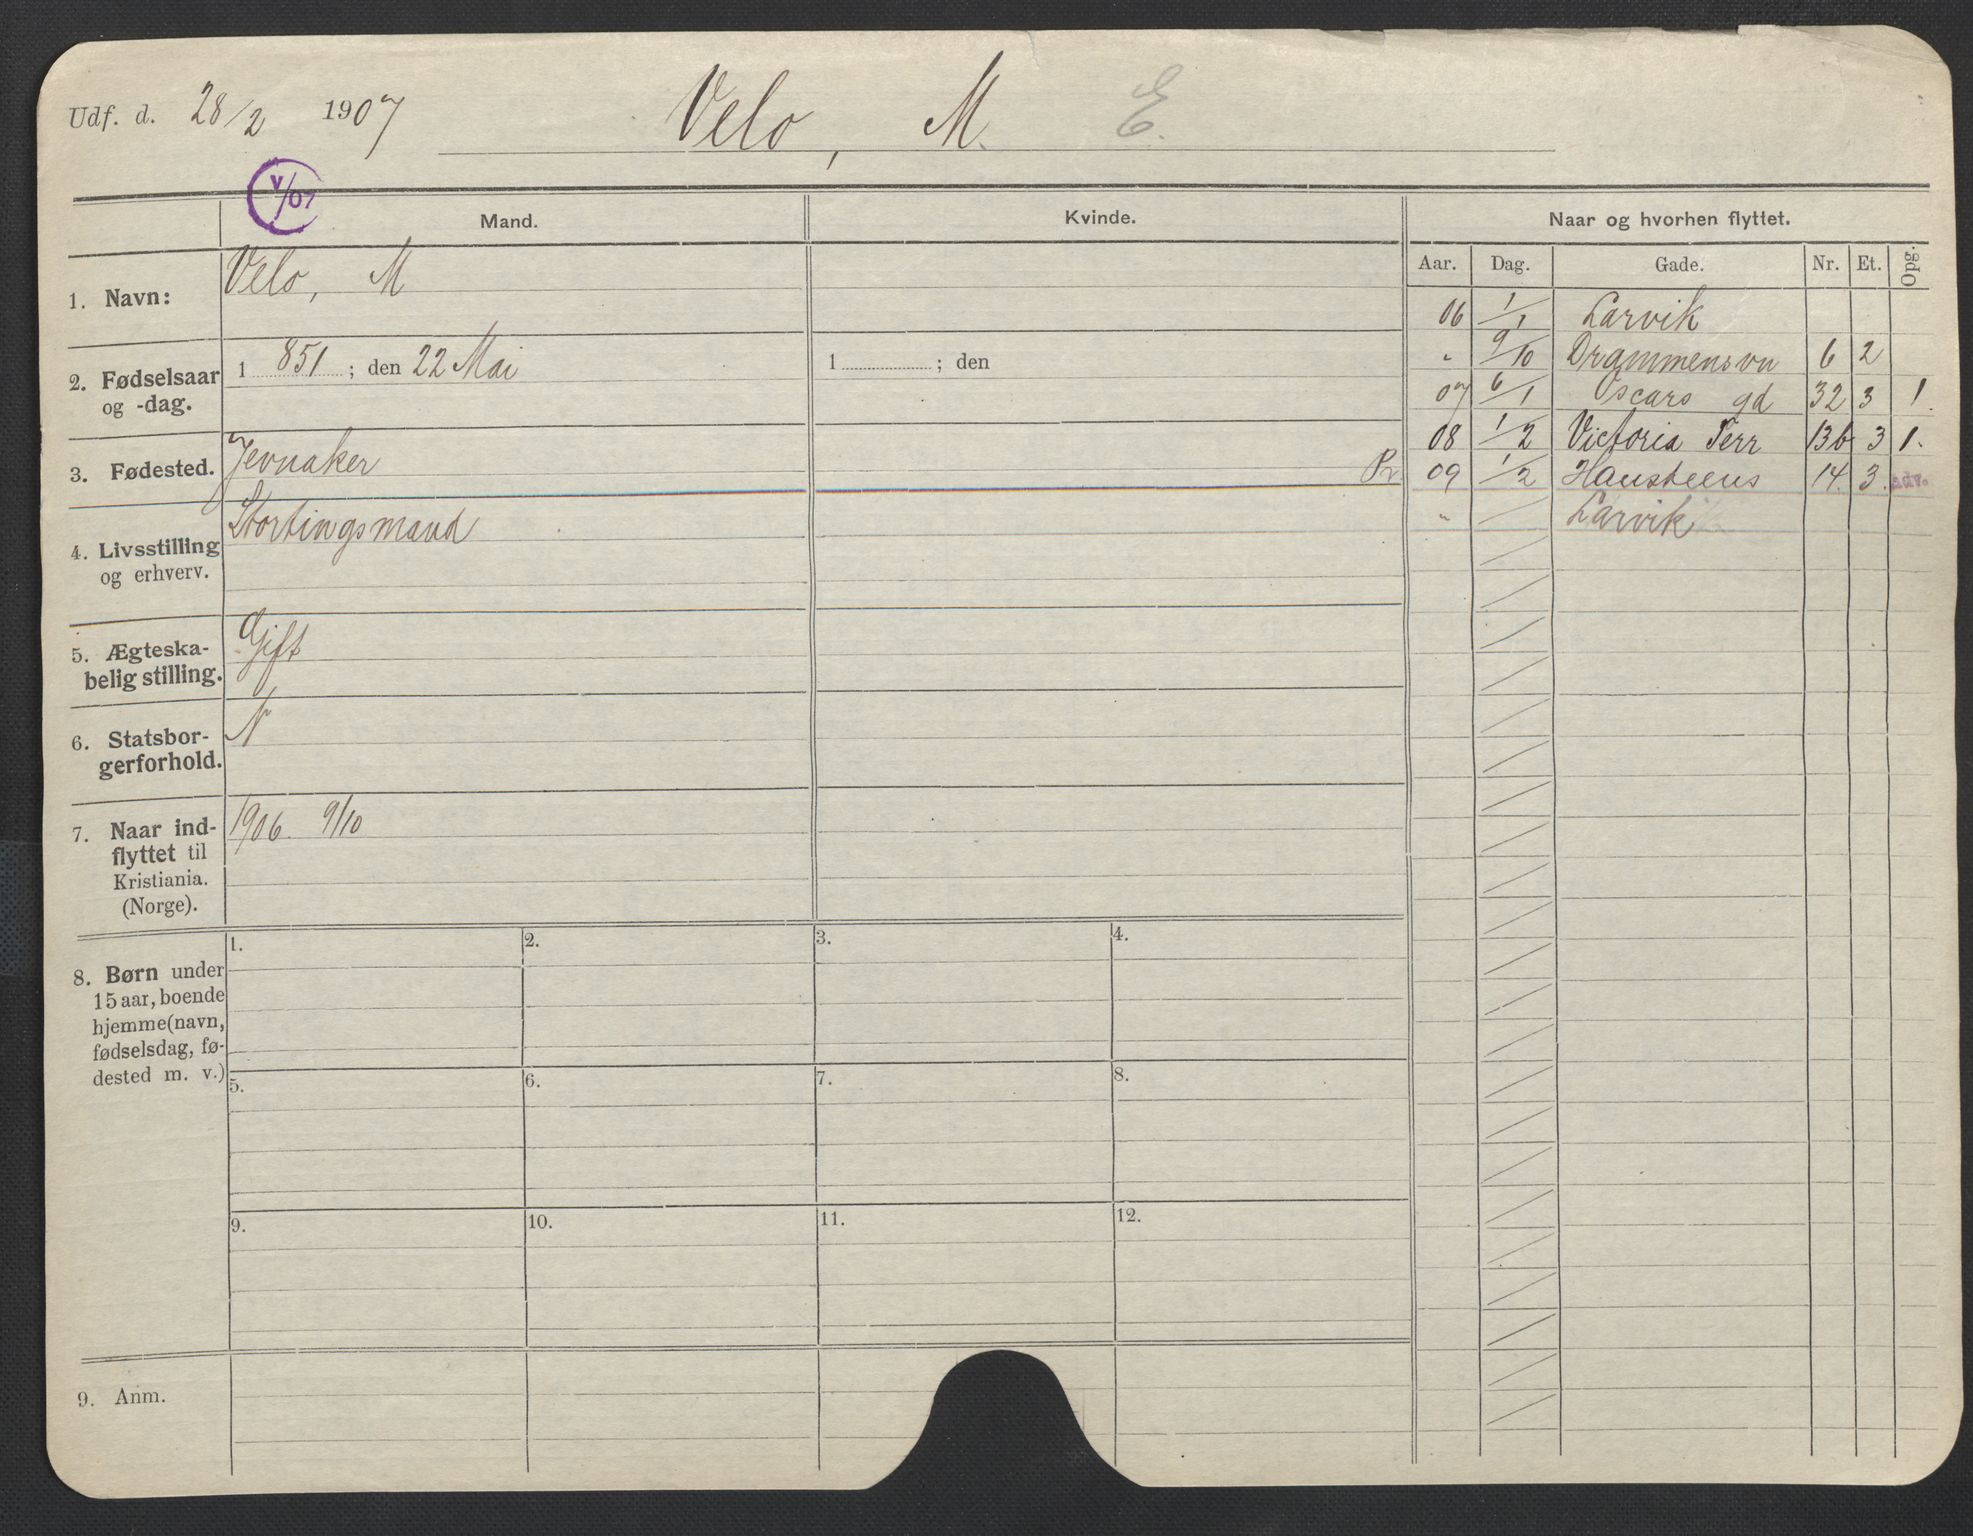 Udf. d. 28/2 1907 Velo, M. E.
V/07
Mand.
Kvinde.
Naar og hvorhen flyttet.
Aar. Dag. Gade. Nr. Et. Opg.
1. Navn: Velo, M
2. Fødselsaar
og -dag.
1 851 ; den 22 Mai
1 ; den
3. Fødested. Jevnaker
4. Livsstilling
og erhverv.
Stortingsmand
5. Ægteska-
belig stilling.
Gift
6. Statsbor-
gerforhold.
N
7. Naar ind-
flyttet til
Kristiania.
(Norge).
1906. 9/10
06 1/1 Larvik
" 9/10 Drammensvn 6 2
07 6/1 Oscars gd 32 3 1.
08 1/2 Victoria Terr 13b 3 1.
Pr. 09 1/2 Hansteens 14. 3. Adv.
" Larvik
8. Børn under
15 aar, boende
hjemme (navn,
fødselsdag, fø-
dested m. v.)
1. 2. 3. 4.
5. 6. 7. 8.
9. 10. 11. 12.
9. Anm.